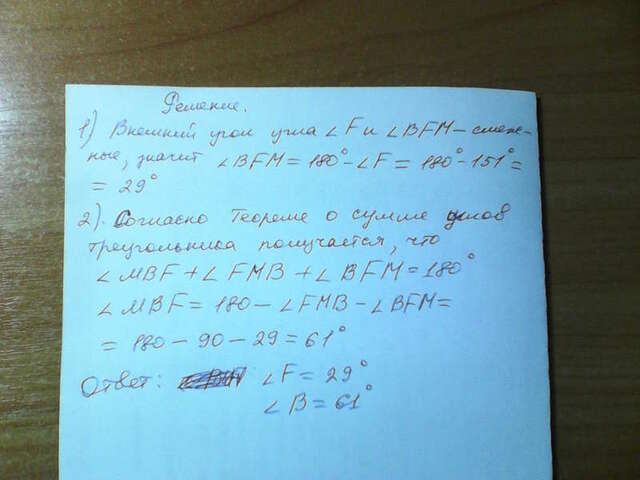 Решение.
1) Внешний угол угла ∠F и ∠BFM – смеж-
ные, значит ∠BFM = 180° - ∠F = 180° - 151° =
= 29°
2). Согласно теореме о сумме углов
треугольника получается, что
∠MBF + ∠FMB + ∠BFM = 180°
∠MBF = 180 - ∠FMB - ∠BFM =
= 180 - 90 - 29 = 61°
Ответ: ∠F = 29°
∠B = 61°